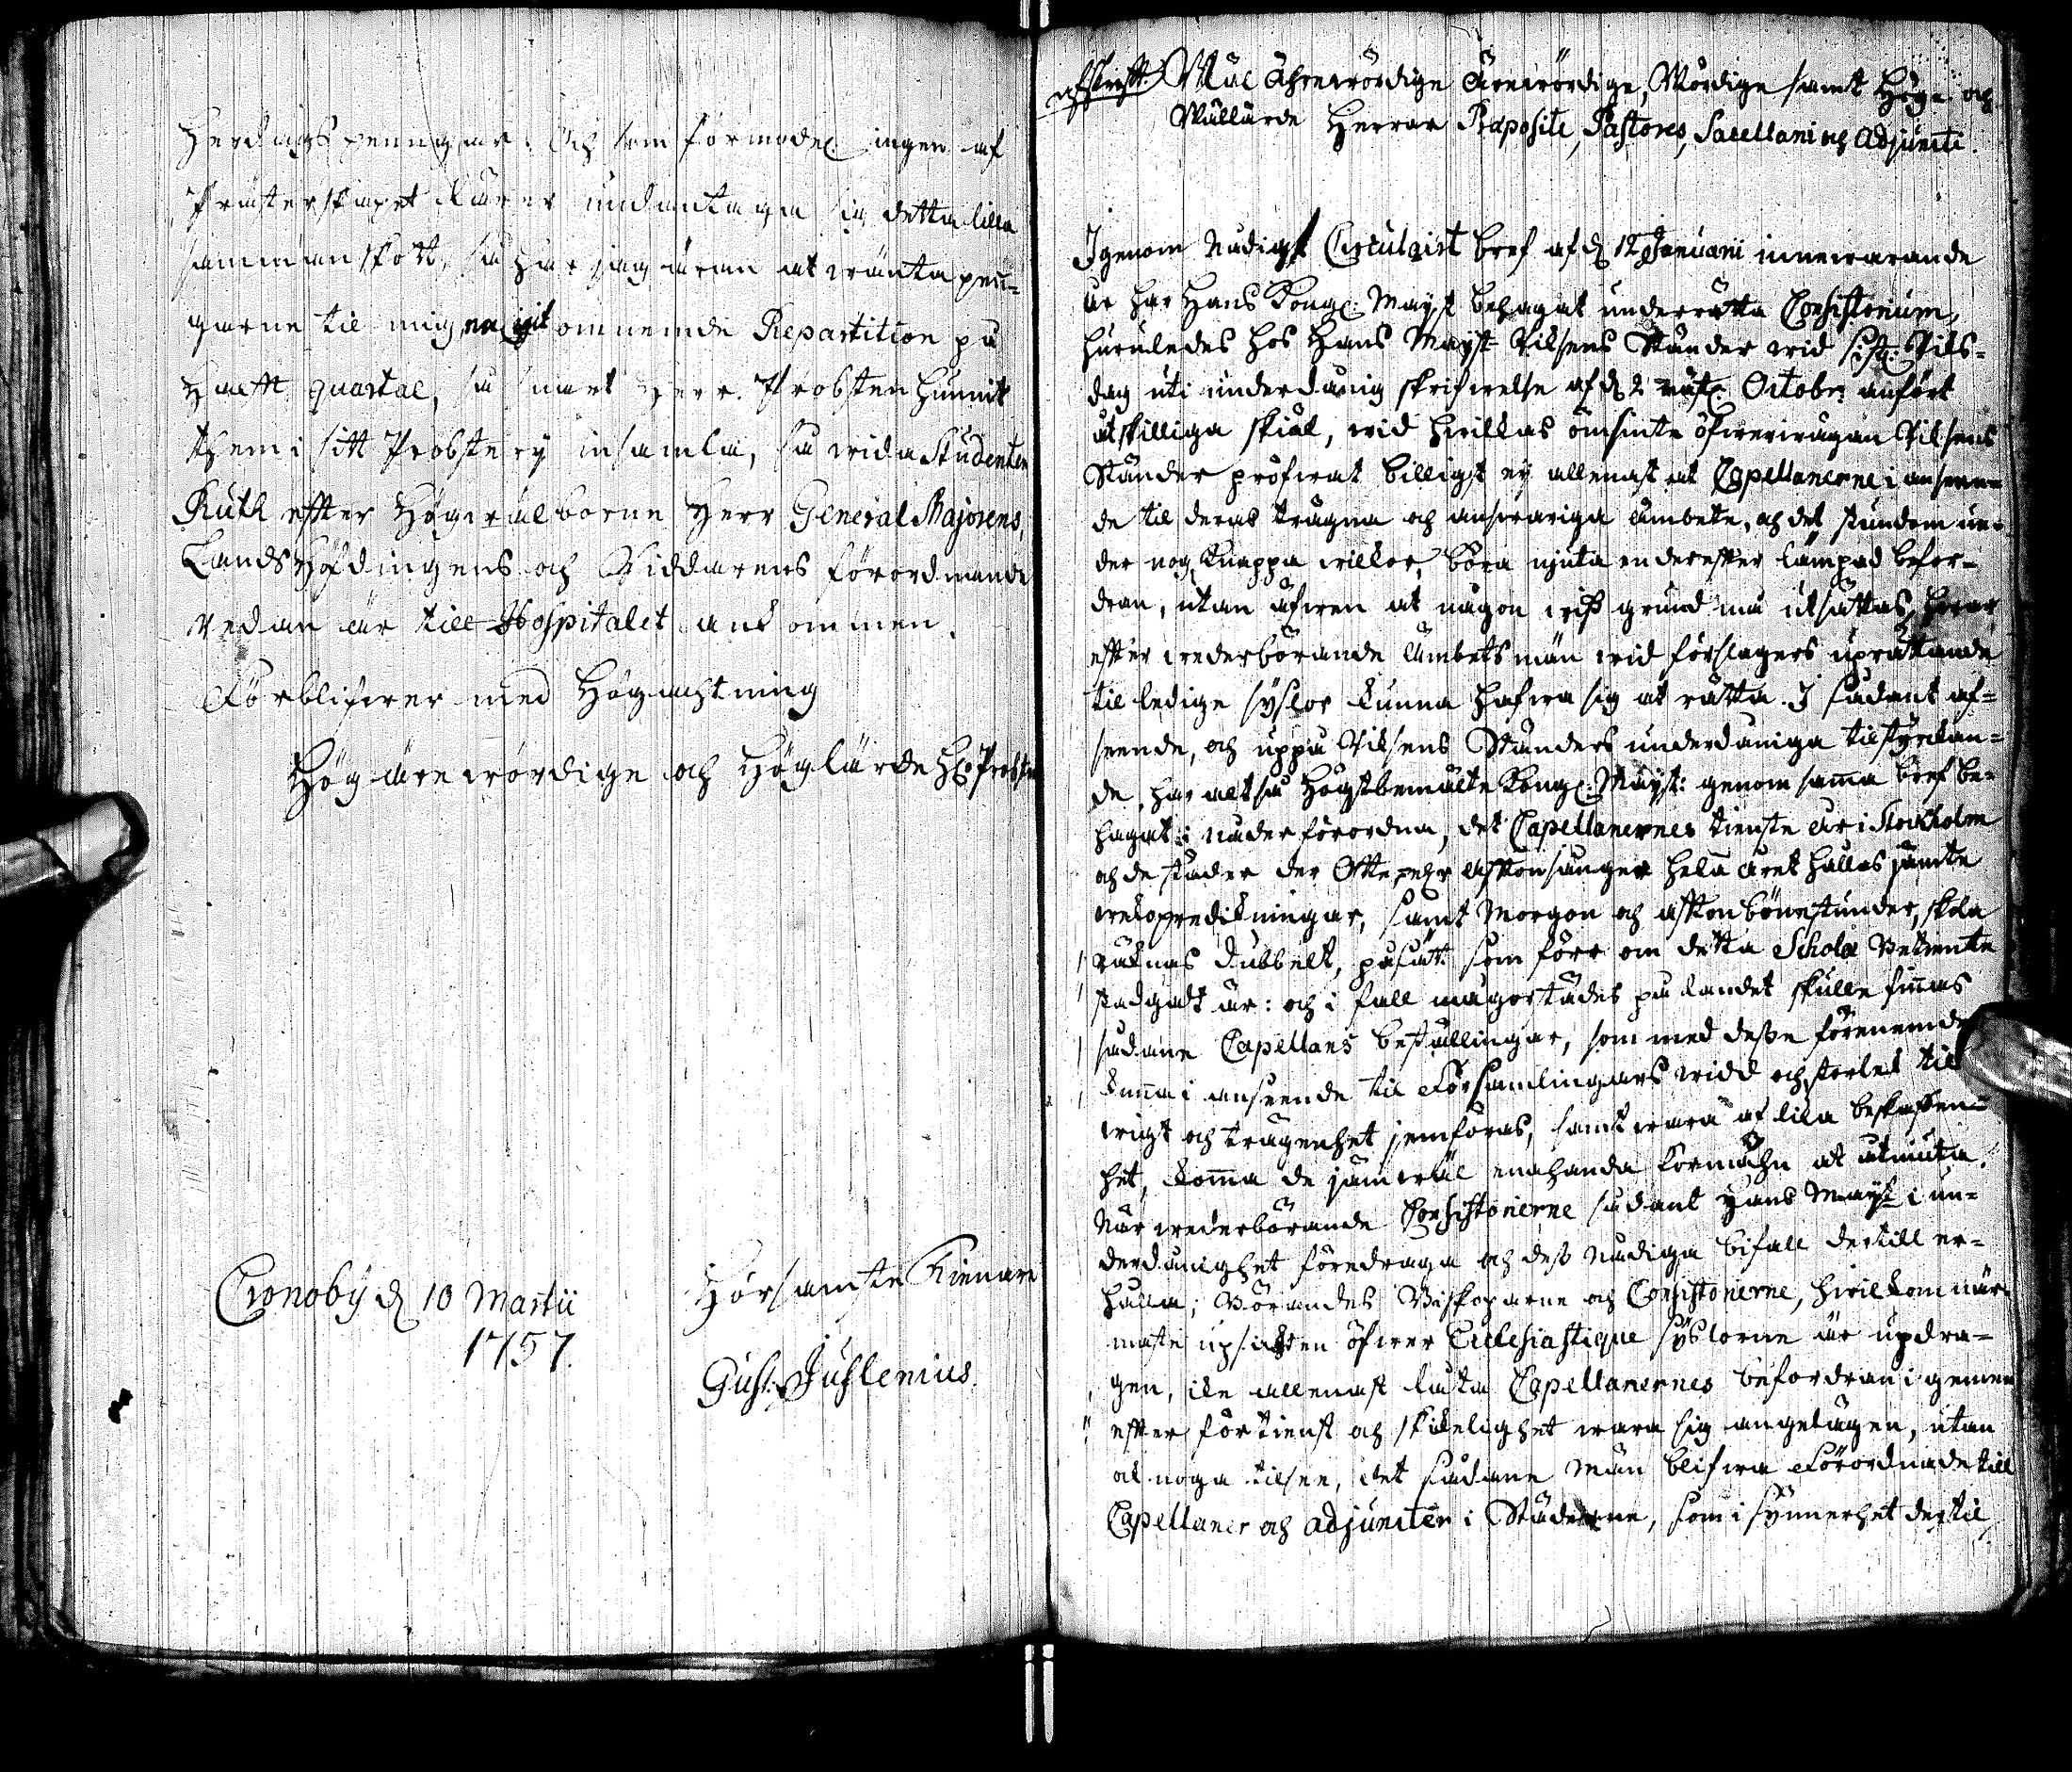 Herdags penngar. Och som förmodel. ingen af
Prästerskapet lärer undantaga sig detta lilla
sammanskott, så har jag äran at wänta pen¬
garne til mig omnemde Repartition på
quartal, så snart Herr Probsten hunnit
them i sitt Probstery insamla, så wida Studenten
Ruth effter Högwälborne Herr General Majorens,
LandsHöfdingens och Riddarens förordnande
redan är till Hospitalet ankommen.
Förblifwer med Högachtning
Högärewördige och Höglärde H. Probsten
Cronoby d. 10 Martii
1757.
Hörsamste Tienare
Gust. Juslenius.
afskrift. Wäl Ährewördige Ärewördige, Wördige samt Höge och
Wällärde Herrar Præpositi, Pastores, Sacellani och Adjuncti.
Igenom Nådigt Circulairt bref af d. 12 Januarii innewarande
år har Hans Kongl. Mayst behagat underrätta Consistorium,
huruledes hos Hans Mayst Riksens Ständer wid sistl. Riks¬
dag uti underdånig skrifwelse af d. 2 näst. Octobr: anfört
åtskilliga skiäl, wid hwilkas ömsinta öfwerwägan Riksens
Ständer pröfwat billigst ey allenast at Capellanerne i anseen¬
de til deras trägna och answariga ämbete, och det stundom un¬
der nog knappa wilkor, böra niuta en derefter lämpad befor¬
dran, utan äfwen at någon wiss grund må utsättas, hwar
effter wederbörande Ämbetsmän wid förslagers uprättande
til ledige syslor kunna hafwa sig at rätta. I sådant af¬
seende, och uppå Riksens Ständers underdåniga tilstyrckan¬
de, har altså Högstbemälte Kongl. Mayst: genom sama bref be¬
hagat i nåder förordna, det Capellanernes tienste år i Stockholm
och de städer der Ottesång och Afftonsånger hela året hållas jämte
weckopredikningar, samt Morgon och afftonbönestunder, skola
räknas dubbelt, påsätt som förr om detta Scholæ Betiente
stadgadt är: och i fall någorstädes på landet skulle finnas
sådane Capellans beställningar, som med desse förenemde
kunna i anseende til Församlingars widd och storlek til
wigt och trägenhet jemföras, samt wara af lika beskaffen¬
het, komma de jämwäl enahanda förmåhn at åtniuta.
När wederbörande Consistorierne sådant Hans Mayst i un¬
derdånighet föredraga och dess Nådiga bifall dertill er¬
hålla; Börandes Biskoparne och Consistorierne, hwilkom när¬
maste upsickten öfwer Ecclesiastique syslorne är updra¬
gen, icke allenast låta Capellanernes befordran i gemen
effter förtienst och skickelighet wara sig angelägen, utan
ock noga tilsee, det sådane män blifwa Förordnade till
Capellaner och adjuncter i Städerne, som i synnerhet der til